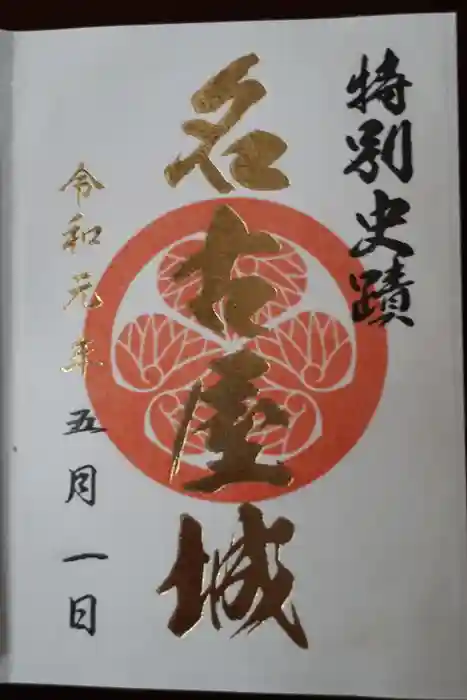 特別史蹟
名古屋城
令和元年五月一日